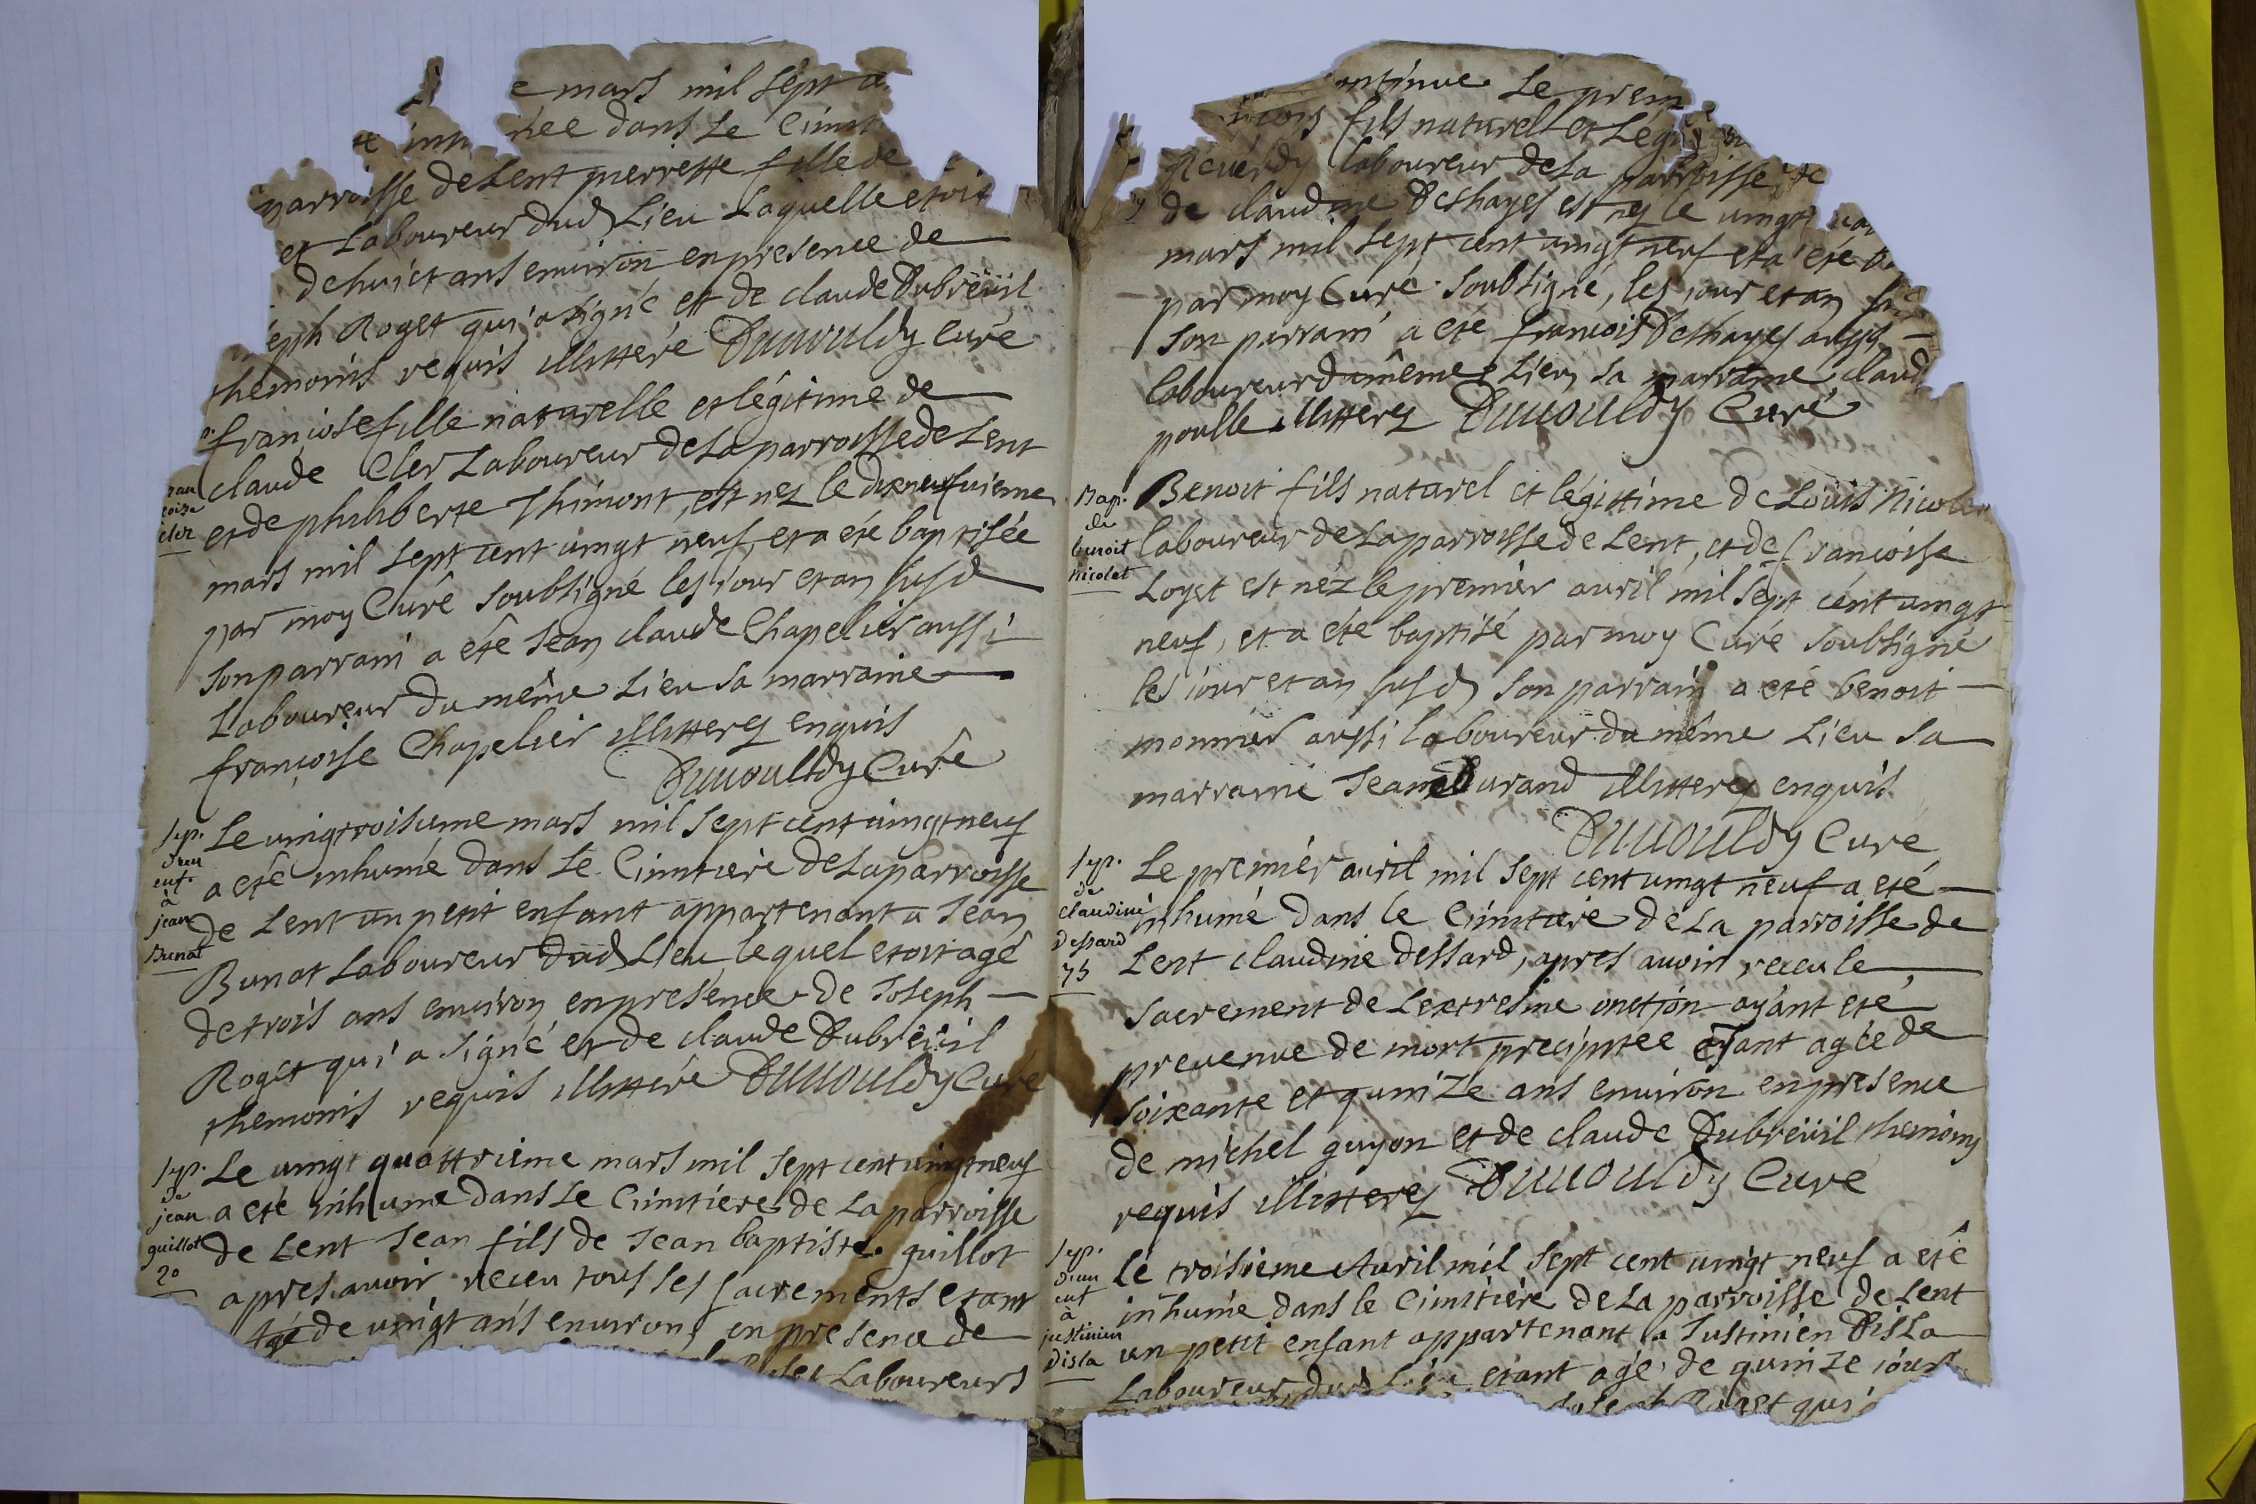 mars mil sept
dans le Cimit
parroisse de Lent pierrette fille de
et Laboureur dud Lieu Laquelle etoit
de huict ans environ en presence de
eph Roget qui a signé et de claude Dubreüil
themoins requis illitteré Duuouldy Curé
françoise fille naturelle et légitime de
claude Cler Laboureur de La parroisse de Lent
et de philiberte Thimont, est nez le dixneufuieme
mars mil sept cent uingt neuf et a été baptisée
par moy Curé soubsigné les jour et an susd
son parrain a été Jean claude Chapelier aussi
Laboureur du même Lieu sa marraine
françoise Chapelier illitterez enquis
Duuouldy Curé
Sep.
d'un
enf.
à
jean
Bunat
Le uingtroisieme mars mil sept cent uingt neuf
a eté inhumé dans Le Cimitiere de La parroisse
de Lent un petit enfant appartenant a Jean
Bunat Laboureur dud Lieu lequel etoit agé
de trois ans enuiron en presence de Joseph
Roget qui a signé et de claude Dubreüil
themoins requis illitteré Duuouldy Curé
Sep.
de
jean
guillot
20
Le uingt quattrieme mars mil sept cent uingt neuf
a eté inhumé dans Le Cimitiere de La parroisse
de Lent Jean fils de Jean baptiste guillot
apres auoir receu tous ses sacrements etant
agé de uingt ans enuiron en presence de
Laboureurs
Le prem
fils naturel et Légi
Reuerdy laboureur de La parroisse de
de claudine Deshayes est nez le uingt
mars mil sept cent uingt neuf et a eté
par moy Curé soubsigné, les jour et an
son parrain a eté francois Deshayes aussi
laboureur du même Lieu sa marraine claud
poulle illitterez Duuouldy Curé
Bap.
de
benoit
nicolet
Benoit fils naturel et légittime de Louis Nicolet
laboureur de La parroisse de Lent, et de francoise
Loyet est néz le premier auril mil sept cent uingt
neuf, et a eté baptisé par moy Curé soubsigné
les jour et an susd son parrain a eté benoit
monnier aussi laboureur du même Lieu sa
marraine Jeanne Durand illitterez enquis
Duuouldy Curé
Sep.
de
claudine
dessard
75
Le premier auril mil sept cent uingt neuf a eté
inhumé dans le Cimitiere de La parroisse de
Lent claudine dessard, apres auoir receu le
sacrement de Lextresme onction ayant eté
preuenue de mort precipitée etant agée de
soixante et quinze ans enuiron en presence
de michel guyon et de claude Dubreüil themoins
requis illitterez Duuouldy Curé
Sep.
d'un
enf
à
justinien
disla
Le troisieme Auril mil sept cent uingt neuf a eté
inhumé dans le Cimitiere de La parroisse de Lent
un petit enfant appartenant a Justinien Disla
Laboureur dud etant agé de quinze jours
qui